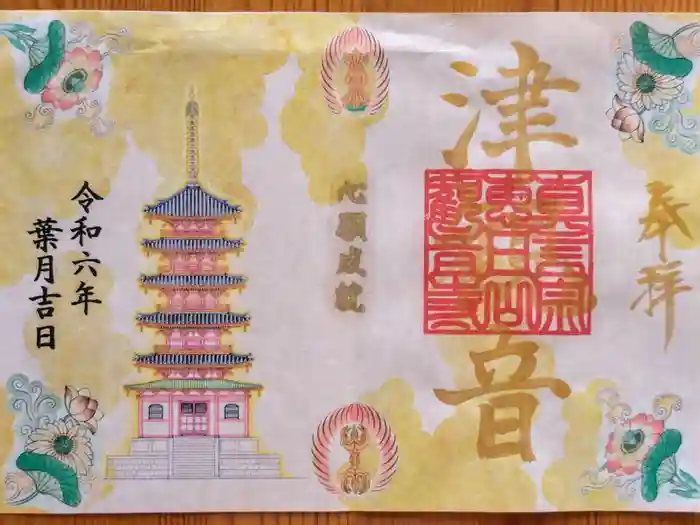 奉拝
津音
真言宗
恵日山
観音寺
心願成就
令和六年
葉月吉日